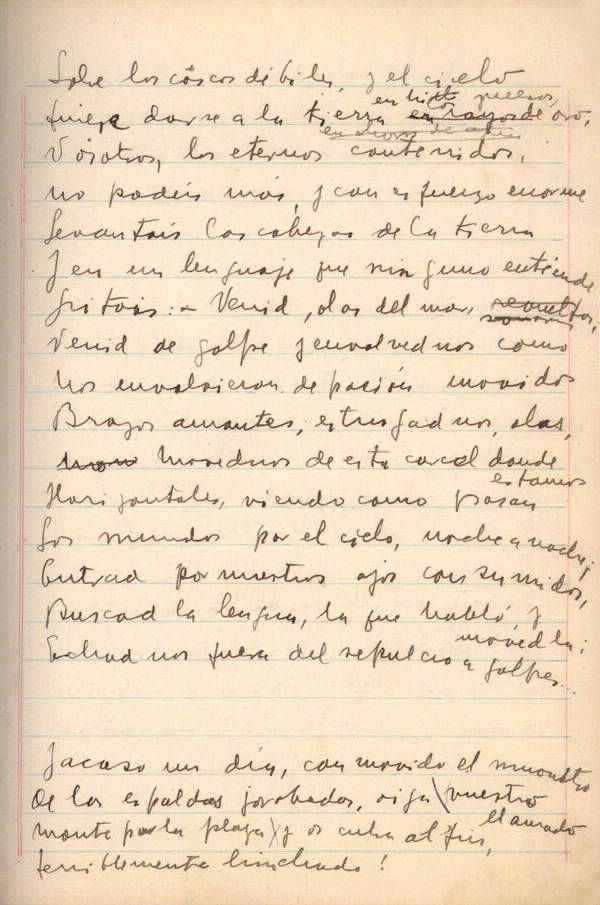 Sobre los cascos débiles, y el cielo
en
fuera darse a la tierra en rayos de oro,
Vosotros, los eternos contenidos,
no podéis más, y con esfuerzo enorme
Levantáis las cabezas de la tierra
Y en un lenguaje que ninguno entiende
Gritáis: - Venid, olas del mar, revueltas,
Venid de golpe y envolvednos como
Nos envolvieron, de pasión movidos
Brazos amantes, estrujadnos, olas,
Movednos de esta carcel donde
estamos
Horizontales, viendo como pasan
Los mundos por el cielo, noche a noche;
Entrad por nuestros ojos consumidos,
Buscad la lengua, la que habló, y
movedla;
Echadnos fuera del sepulcro a golpes...
Y acaso un día, conmovido el monstruo
De las espaldas jorobadas, oiga vuestro
llamado
monte por la playa y os cubra al fin,
terriblemente hinchado!